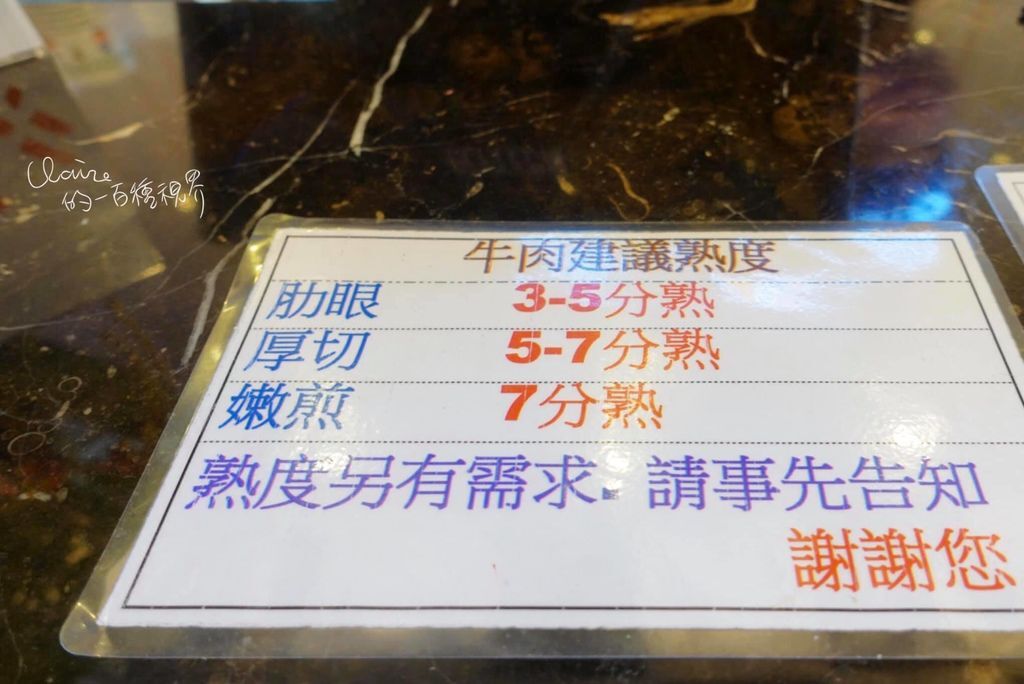 Claire
的一百種視界
牛肉建議熟度
肋眼 3-5分熟
厚切 5-7分熟
嫩煎 7分熟
熟度另有需求. 請事先告知
謝謝您